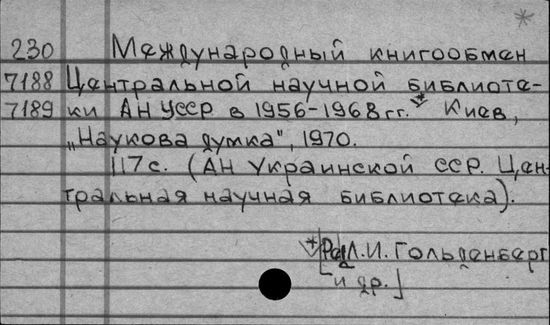 *
230 Международный книгообмен
7188 Центральной научной библиоте-
7189 ки АН УССР в 1956-1968 гг. * Киев,
„Наукова думка", 1970.
117 с. (АН Украинской ССР. Цен-
тральная научная библиотека).
* [Ред. Л.И. Гольденберг
и др.]